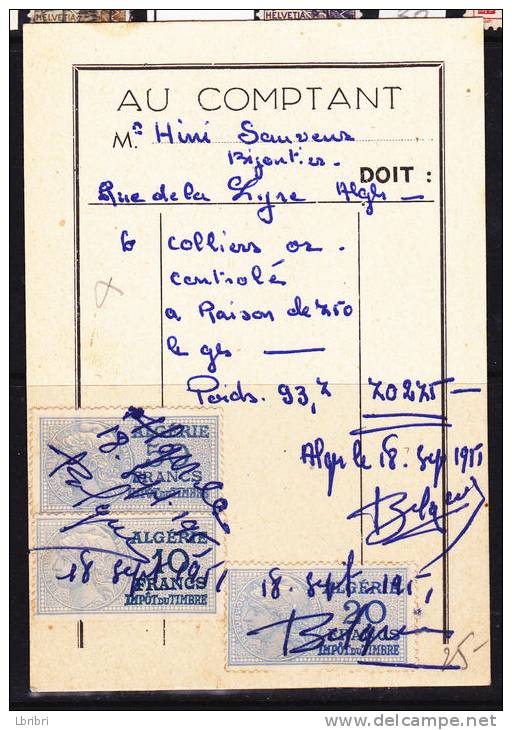 HELVETIA HELVETIA
AU COMPTANT
Mr Hini Sauveur
Bijoutier.
DOIT :
Rue de la Lyre Alger
6 Colliers or.
controlé
a Raison de 750
le gr
Poids. 93,7 70275
Alger le 18. Sep 1951
ALGÉRIE
FRANCS
IMPÔT DU TIMBRE
ALGÉRIE
10
FRANCS
IMPÔT DU TIMBRE
18 Sept 1951
18. Sept. 1951
ALGÉRIE
20
FRANCS
IMPÔT DU TIMBRE
25-
Lbribri
http://www.delcampe.net